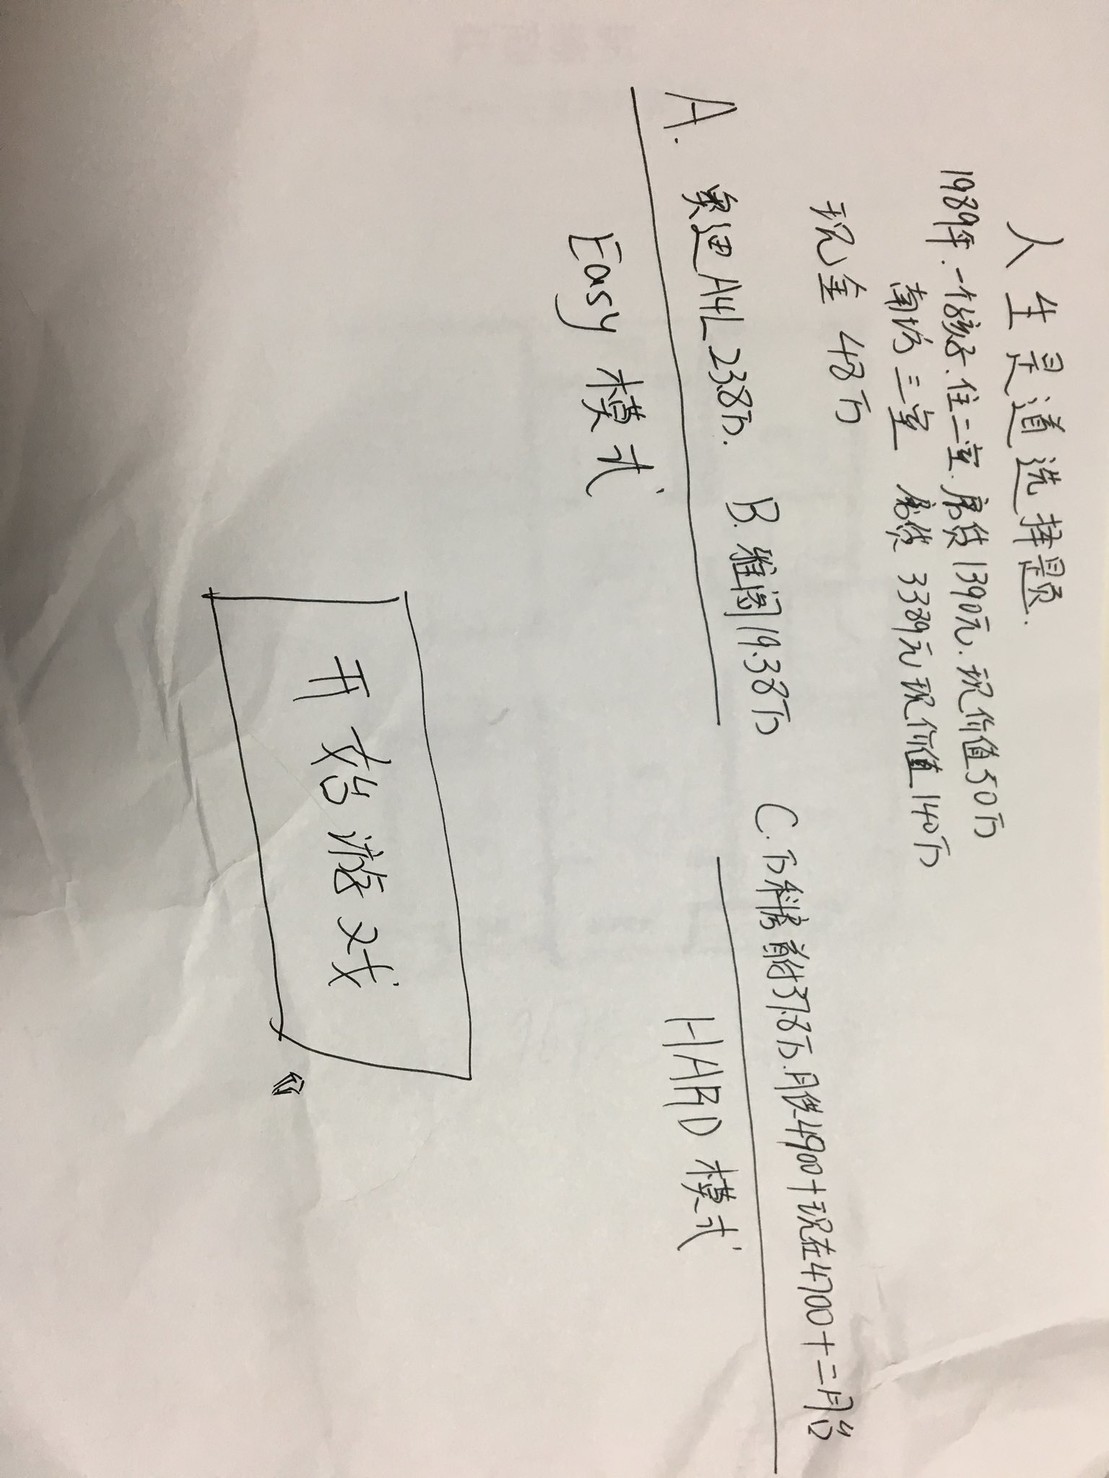 人生是道选择题.
1989年.一个孩子.住二室.房贷1390元.现价值50万
南坊三室 房贷 3389元现价值140万
现金 48万
A. 奥迪A4L 23.8万. B. 雅阁19.38万 C. 万科房首付37.8万.月供4900+现在4700+二月台
Easy 模式 HARD 模式
开始游戏